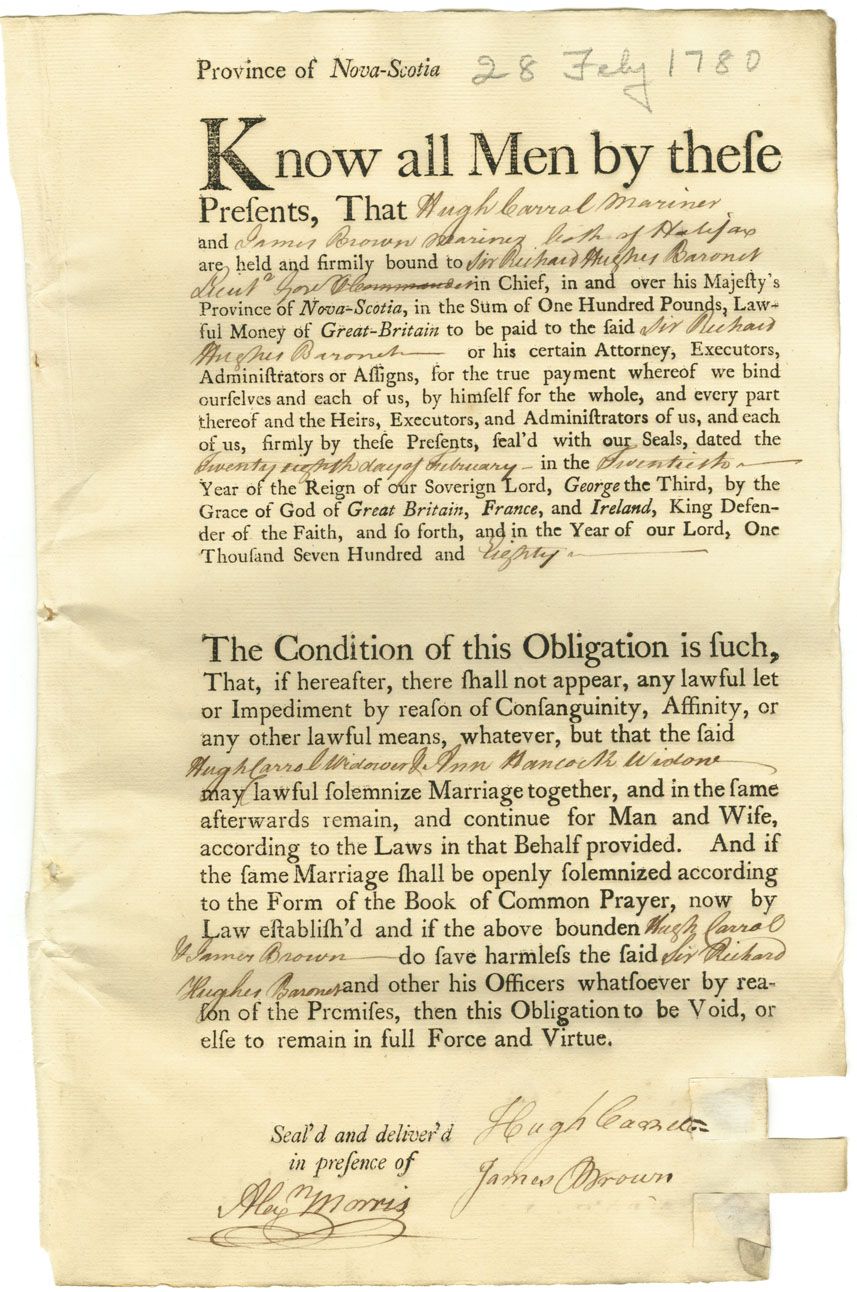 Province of Nova-Scotia 28 Feby 1780
Know all Men by theſe
Preſents, That Hugh Carrol Mariner
and James Brown Mariner both of Halifax
are held and firmily bound to Sir Richard Hughes Baronet
Lieut Commander in Chief, in and over his Majeſty's
Province of Nova-Scotia, in the Sum of One Hundred Pounds, Law-
ful Money of Great-Britain to be paid to the ſaid Sir Richard
Hughes Baronet or his certain Attorney, Executors,
Adminiſtrators or Aſſigns, for the true payment whereof we bind
ourſelves and each of us, by himſelf for the whole, and every part
thereof and the Heirs, Executors, and Adminiſtrators of us, and each
of us, firmly by theſe Preſents, ſeal'd with our Seals, dated the
Twenty eighth day of February – in the Twentieth
Year of the Reign of our Soverign Lord, George the Third, by the
Grace of God of Great Britain, France, and Ireland, King Defen-
der of the Faith, and ſo forth, and in the Year of our Lord, One
Thouſand Seven Hundred and Eighty
The Condition of this Obligation is ſuch,
That, if hereafter, there ſhall not appear, any lawful let
or Impediment by reaſon of Conſanguinity, Affinity, or
any other lawful means, whatever, but that the ſaid
Hugh Carrol Widower & Ann Hancock Widow
may lawful ſolemnize Marriage together, and in the ſame
afterwards remain, and continue for Man and Wife,
according to the Laws in that Behalf provided. And if
the ſame Marriage ſhall be openly ſolemnized according
to the Form of the Book of Common Prayer, now by
Law eſtabliſh'd and if the above bounden Hugh Carrol
& James Brown do ſave harmleſs the ſaid Sir Richard
Hughes Baronet and other his Officers whatſoever by rea-
ſon of the Premiſes, then this Obligation to be Void, or
elſe to remain in full Force and Virtue.
Seal'd and deliver'd Hugh
in preſence of James Brown
Alexr Morris